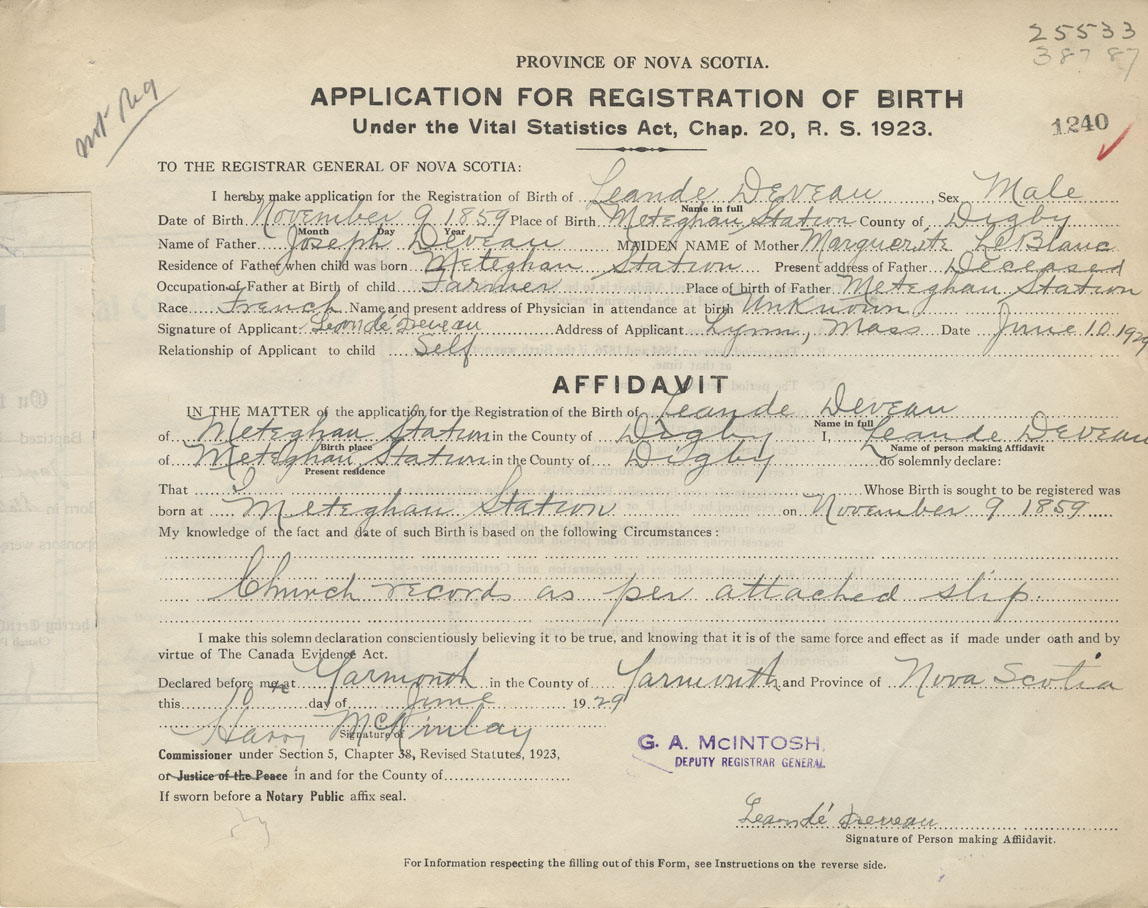 25533
38787
PROVINCE OF NOVA SCOTIA.
not Reg
APPLICATION FOR REGISTRATION OF BIRTH
Under the Vital Statistics Act, Chap. 20, R. S. 1923.
1240
TO THE REGISTRAR GENERAL OF NOVA SCOTIA:
I hereby make application for the Registration of Birth of Leande Deveau, Sex Male
Name in full
Date of Birth November 9 1859 Place of Birth Meteghan Station County of Digby
Month Day Year
Name of Father Joseph Deveau MAIDEN NAME of Mother Marguerite LeBlanc
Residence of Father when child was born Meteghan Station Present address of Father Deceased
Occupation of Father at Birth of child Farmer Place of birth of Father Meteghan Station
Race French Name and present address of Physician in attendance at birth Unknown
Signature of Applicant Leandé Deveau Address of Applicant Lynn, Mass Date June 10 1929
Relationship of Applicant to child Self
AFFIDAVIT
IN THE MATTER of the application for the Registration of the Birth of Leande Deveau
Name in full
of Meteghan Station in the County of Digby I, Leande Deveau
Birth place Name of person making Affidavit
of Meteghan Station in the County of Digby do solemnly declare:
Present residence
That I Whose Birth is sought to be registered was
born at Meteghan Station on November 9 1859
My knowledge of the fact and date of such Birth is based on the following Circumstances:
Church records as per attached slip.
I make this solemn declaration conscientiously believing it to be true, and knowing that it is of the same force and effect as if made under oath and by
virtue of The Canada Evidence Act.
Declared before me at Yarmouth in the County of Yarmouth and Province of Nova Scotia
this 10 day of June 1929
Harry McKinlay
Signature of
Commissioner under Section 5, Chapter 38, Revised Statutes, 1923,
or Justice of the Peace in and for the County of
If sworn before a Notary Public affix seal.
G. A. McINTOSH,
DEPUTY REGISTRAR GENERAL
Leandé Deveau
Signature of Person making Affiidavit.
For Information respecting the filling out of this Form, see Instructions on the reverse side.